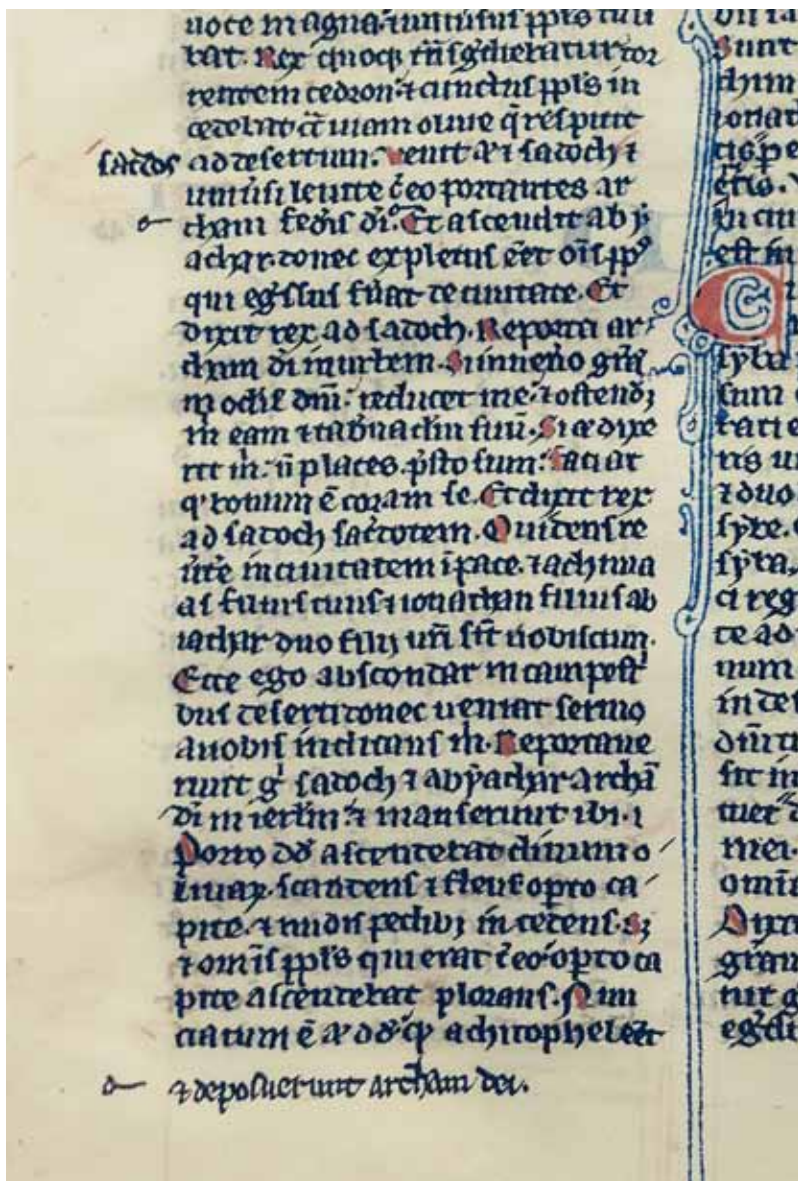 uoce magna. ⁊ uniuersus ppl's tᷓnsi
bat. Rex quoq; tᷓnsg̾diebatur tor
rentem cedron. ⁊ cunctus ppl's in
cedebat ct̾ uiam oliue q̄ respicit
sac̾dos ad desertum. Venit aū ⁊ sadoch ⁊
uniũsi leuite c̄ eo portantes ar
cham fed̾is di. Et ascendit aby
achar. donec expletus eēt oīs pp̄s
qui eg̾ssus fũat de ciuitate. Et
dixit rex ad sadoch. Reporta ar
cham di in urbem. Si inuen̾o grām
in oclis dñi: reducet me. ⁊ ostend;
m̄ eam ⁊ tab̾naclm suū. Si aū dixe
rit m̄: ñ places. p̄sto sum. faciat
q̄ bonum ē coram se. Et dixit rex
ad sadoch sac̾dotem. O uidens re
ũte in ciuitatem ī pace. ⁊ achima
as filius tuus ⁊ ionathan filius ab
iathar duo filii ur̄i sīt uobiscum.
Ecce ego abscondar in campest̾
bus deserti donec ueniat sermo
a uobis indicans m̄. Reportaue
runt g̾ sadoch ⁊ abyachar archā
di in ierl̄m. ⁊ manserunt ibi.
Porro dd̾ ascendebat cliuum o
liuaꝝ. scandens ⁊ flens op̾to ca
pite. ⁊ nudis pedib; incedens. S;
⁊ omīs ppl's qui erat c̄ eo op̾to ca
pite ascendebat plorans. Nun
ciatum ē aū dd̾ qꝫ achitophel eēt
⁊ deposuerunt archam dei.
Sunt
chim
ionat
est in
syba
sum
⁊ duo
sybe.
syba.
ci reg
te ad
num
in de
sit in
mei.
omīa
Dixi